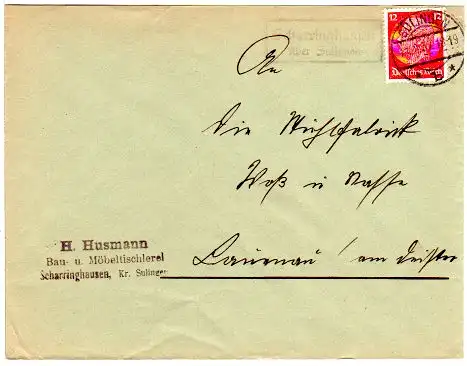 Scharringhausen
über Sulingen
12 12
Deutsches Reich
SULINGEN
19
An
Die Stuhlfabrik
Voß u
Lauenau / am Deister
H. Husmann
Bau- u. Möbeltischlerei
Scharringhausen, Kr. Sulingen